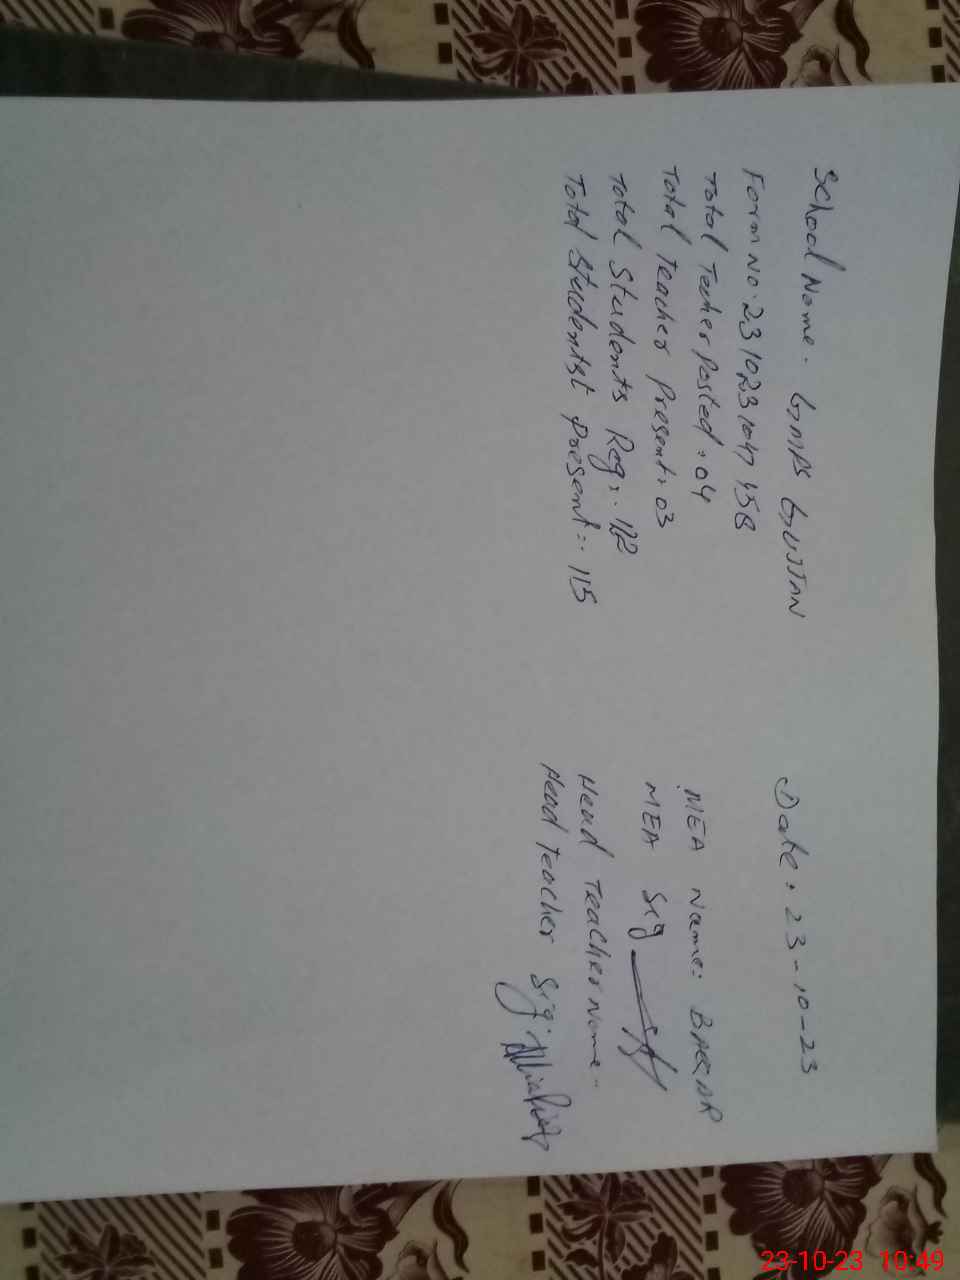 School Name. GMPS GUJJAN
Date: 23-10-23
Form No. 231023
Total Teacher Posted: 04
Total Teacher Present: 03
Total Students Reg:
Total Studentst present:- 115
MEA Name:
MEA Sig
Head Teacher Name.-
Head Teacher Sig:
23-10-23 10:49